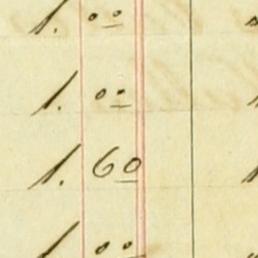 1. 00
1. 00
1. 60
1. 00